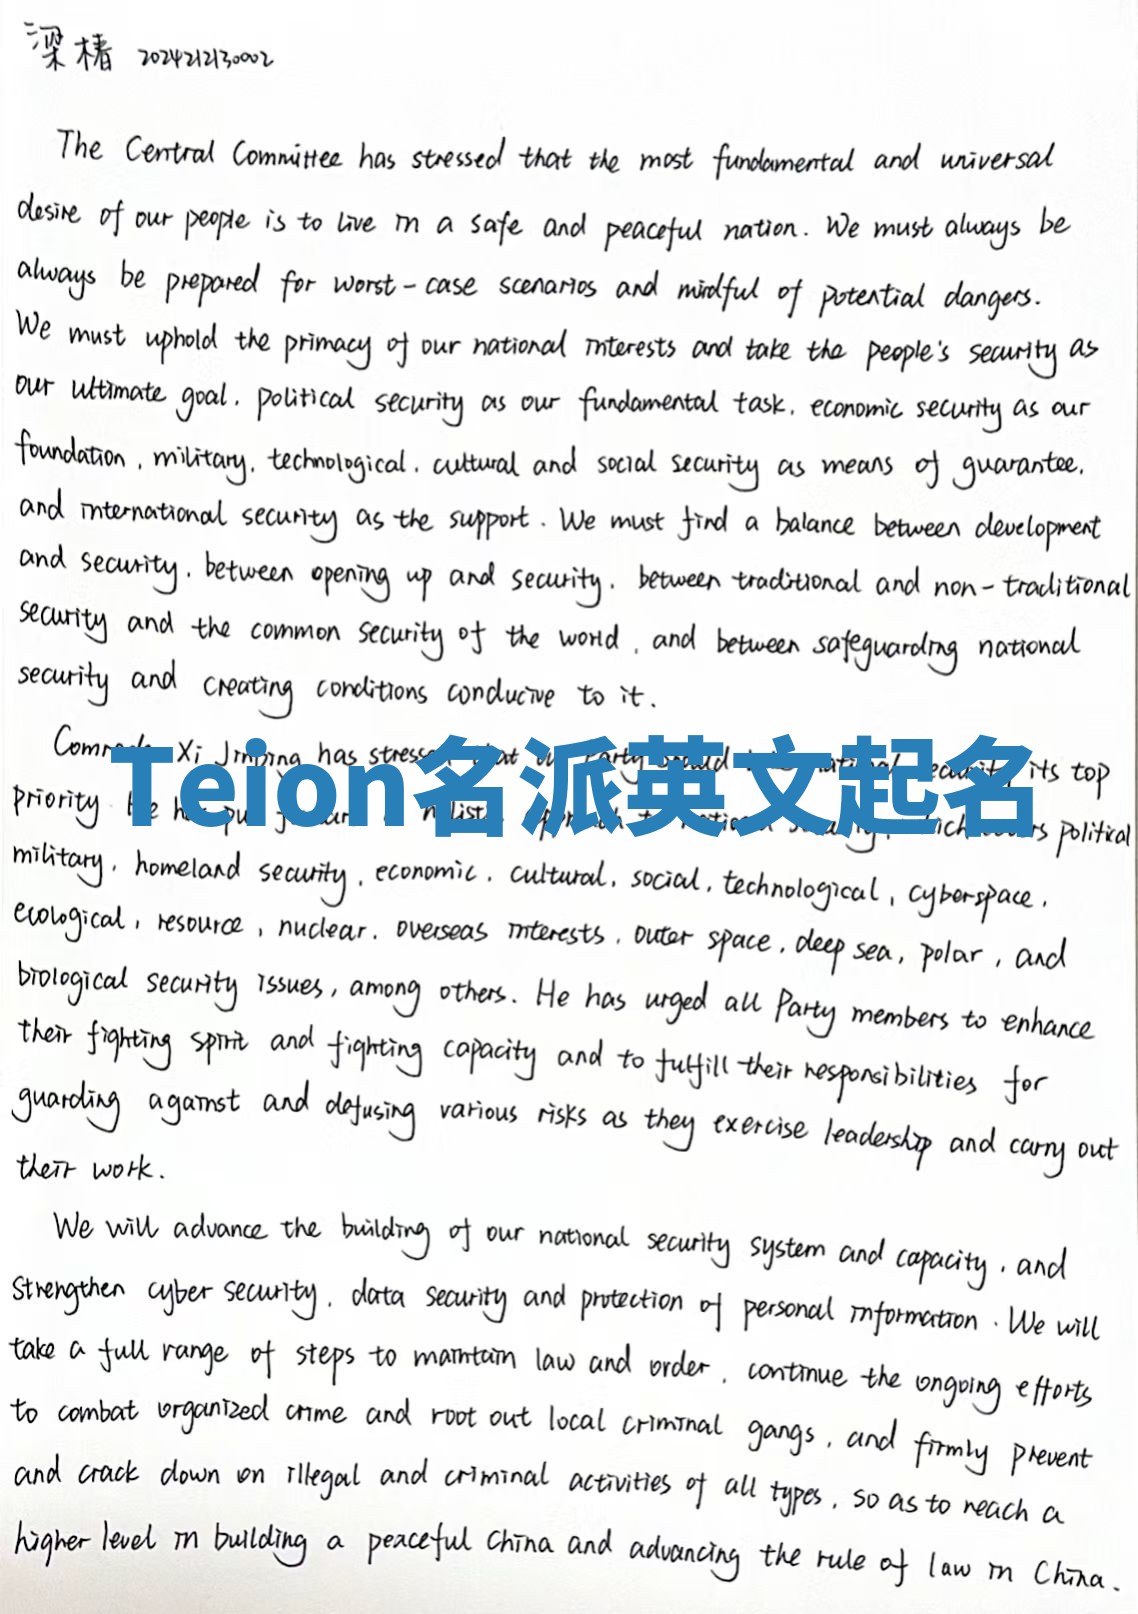 梁椿 2024212130002
The Central Committee has stressed that the most fundamental and universal
desire of our people is to live in a safe and peaceful nation. We must always be
always be prepared for worst-case scenarios and mindful of potential dangers.
We must uphold the primacy of our national interests and take the people's security as
our ultimate goal, political security as our fundamental task, economic security as our
foundation, military, technological, cultural and social security as means of guarantee,
and international security as the support. We must find a balance between development
and security, between opening up and security, between traditional and non-traditional
security and the common security of the world, and between safeguarding national
security and creating conditions conducive to it.
Xi Jinping has its top
Teion名派英文起名
priority political
military, homeland security, economic, cultural, social, technological, cyberspace,
ecological, resource, nuclear, overseas interests, outer space, deep sea, polar, and
biological security issues, among others. He has urged all Party members to enhance
their fighting spirit and fighting capacity and to fulfill their responsibilities for
guarding against and defusing various risks as they exercise leadership and carry out
their work.
We will advance the building of our national security system and capacity, and
strengthen cyber security, data security and protection of personal information. We will
take a full range of steps to maintain law and order, continue the ongoing efforts
to combat organized crime and root out local criminal gangs, and firmly prevent
and crack down on illegal and criminal activities of all types, so as to reach a
higher level in building a peaceful China and advancing the rule of law in China.